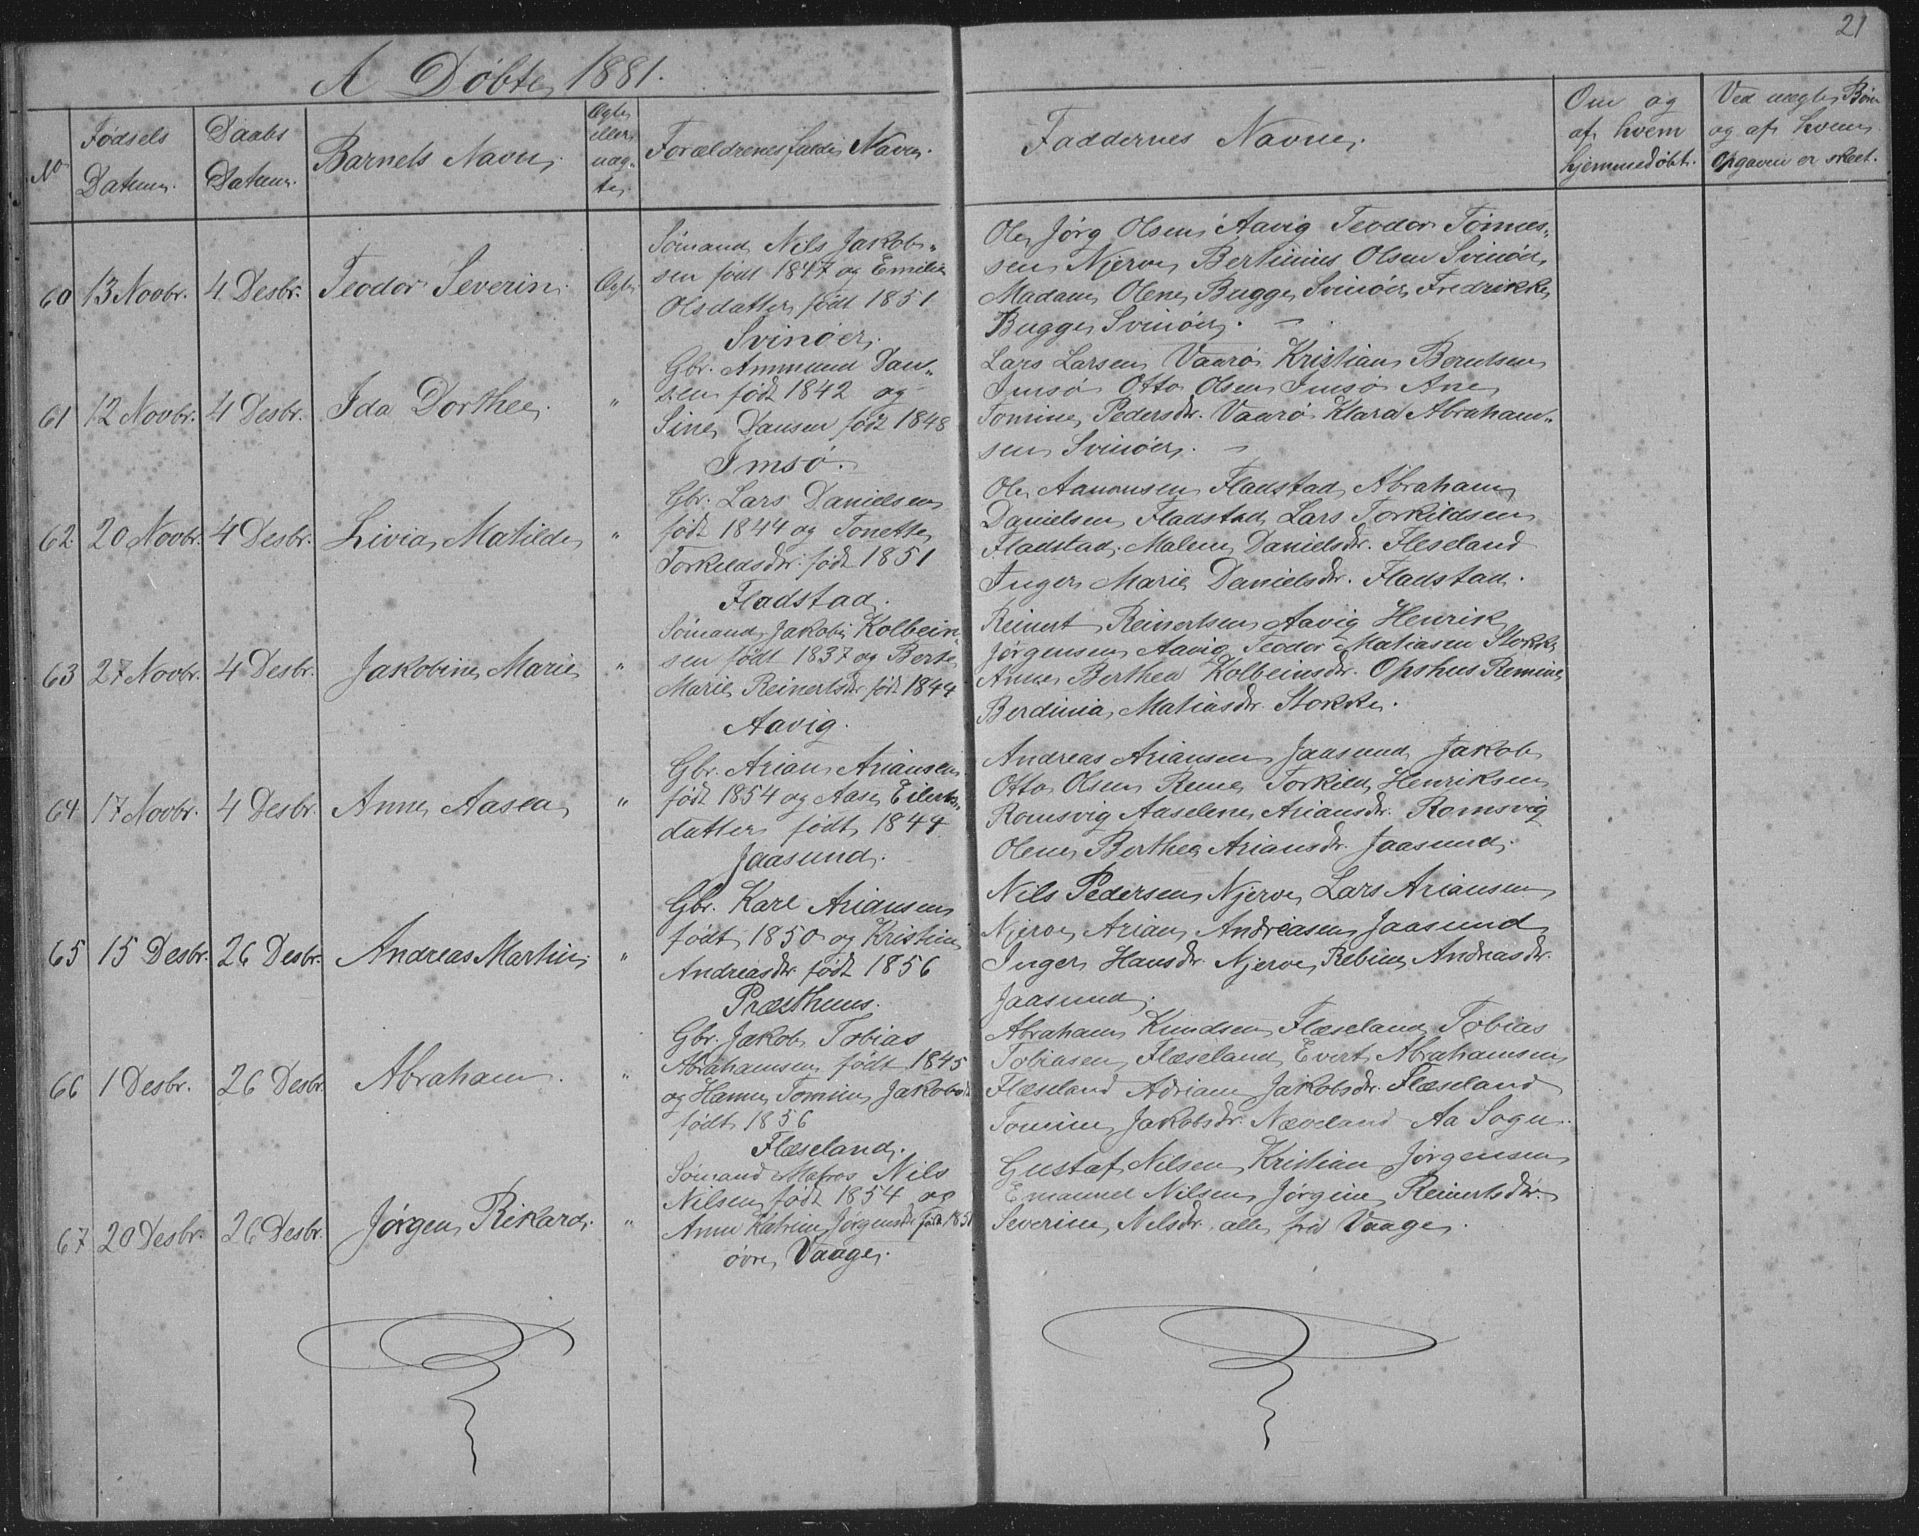 21
A Døbte, 1881.
No
Fødsels
Datum.
Daabs
Datum.
Barnets Navn.
Ægte
eller
uæg-
te.
Forældrenes fulde Navn.
Faddernes Navne.
Om og
af hvem
hjemmedøbt.
Ved uægte Børn
og af hvem
Opgaven er skeet.
60 13 Novbr. 4 Desbr. Teodor Severin. Ægte
Sømand Nils Jakob-
sen født 1847 og Emilie
Olsdatter født 1851
Svinøer.
Ole Jørg Olsen Aavig Teodor Tønnes-
sen Njerve Bertinius Olsen Svinøer
Madam Olene Bugge Svinøer Fredrikke
Bugge Svinøer. –
61 12 Novbr. 4 Desbr. Ida Dorthea. "
Gbr. Ammund Dan-
sen født 1842 og
Sine Dansen født 1848
Imsø.
Lars Larsen Vaarø Kristian Berntsen
Imsø Otto Olsen Imsø Ane
Tomine Pedersdr. Vaarø Klara Abraham-
sen Svinøer. –
62. 20 Novbr. 4 Desbr. Livia Matilde "
Gbr. Lars Danielsen
født 1844 og Tonette
Torkildsdr. født 1851
Fladstad.
Ole Aanonsen Fladstad Abraham
Danielsen Fladstad Lars Torkildsen
Fladstad. Malene Danielsdr. Fleseland
Inger Marie Danielsdr. Fladstad.
63 27 Novbr. 4 Desbr. Jakobine Marie "
Sømand Jakob Kolbein-
sen født 1837 og Berte
Marie Reinertsdr født 1844
Aavig.
Reinert Reinertsen Aavig Henrik
Jørgensen Aavig Teodor Matiasen Stokke
Anne Berthea Kolbeinsdr. Opshus Remine
Berdinia Matiasdr. Stokke.
64 17 Novbr. 4 Desbr. Anne Aasea "
Gbr. Arian Ariansen
født 1854 og Aase Eilerts-
datter født 1844.
Jaasund.
Andreas Ariansen Jaasund Jakob
Otto Olsen Reme Torkild Henriksen
Romsvig Aaselene Ariansdr. Romsvig
Olene Berthea Ariansdr. Jaasund.
65 15 Desbr. 26 Desbr. Andreas Martin. "
Gbr. Karl Ariansen
født 1850 og Kristine
Andreasdr. født 1856
Præsthuus.
Nils Pedersen Njerve Lars Ariansen
Njerve Arian Andreasen Jaasund
Inger Hansdr. Njerve Rebine Andreasdr.
Jaasund.
66 1 Desbr. 26 Desbr. Abraham. "
Gbr. Jakob Tobias
Abrahamsen født 1845
og Hanne Tomine Jakobsdr
født 1856
Flæseland.
Abraham Knudsen Flæseland Tobias
Tobiasen Flæseland Evert Abrahamsen
Flæseland Adriane Jakobsdr. Flæseland
Tomine Jakobsdr. Næveland Aa Sogn.
67 20 Desbr. 26 Desbr. Jørgen Rikard. "
Sømand Matros Nils
Nilsen født 1854 og
Anne Katrine Jørgensdr. født 1851
øvre Vaage.
Gustaf Nilsen Kristian Jørgensen
Emanuel Nilsen Jørgine Reinertsdr.
Severine Nilsdr. alle fra Vaage.